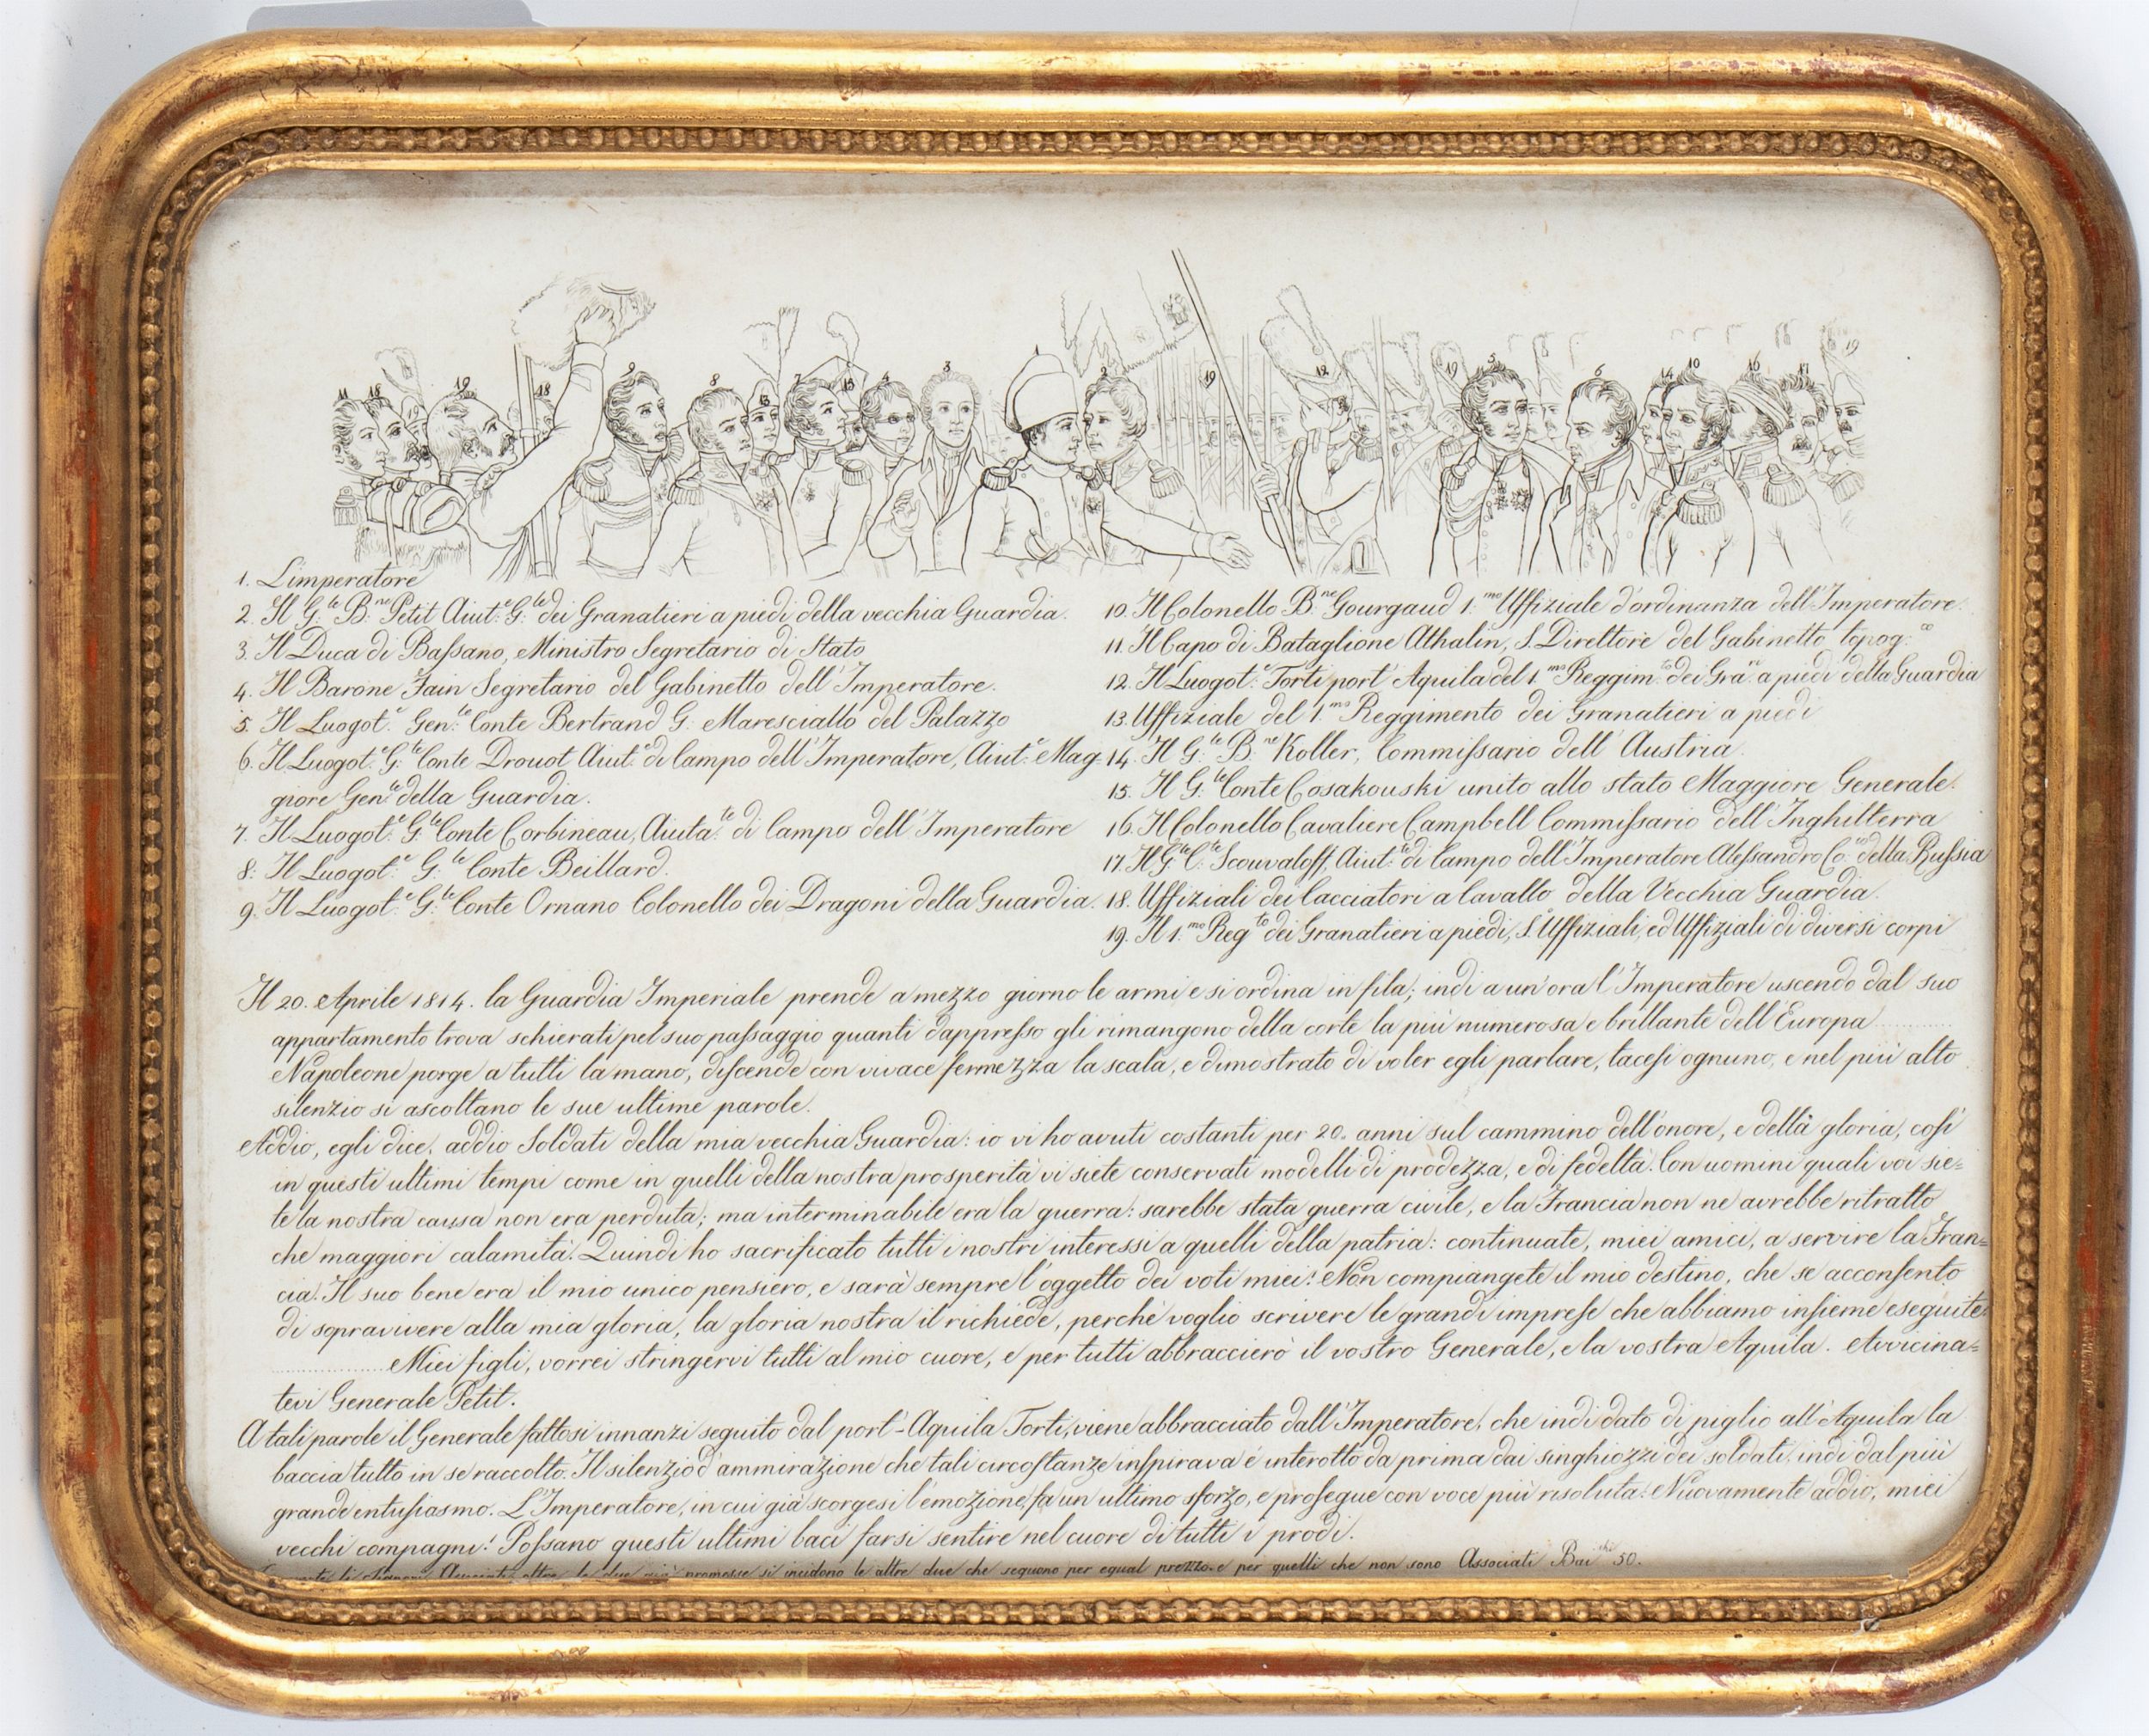 1. L'imperatore
2. Il G.te B.ne Petit Aiut.e G.te dei Granatieri a piedi della vecchia Guardia.
3. Il Duca di Baſsano, Ministro Segretario di Stato
4. Il Barone Fain Segretario del Gabinetto dell'Imperatore.
5. Il Luogot.e Gen.te Conte Bertrand G. Maresciallo del Palazzo
6. Il Luogot.e G.te Conte Drouot Aiut.e di Campo dell'Imperatore, Aiut.e Mag-
giore Gen.le della Guardia.
7. Il Luogot.e G.te Conte Corbineau, Aiuta.te di Campo dell'Imperatore
8. Il Luogot.e G.te Conte Beillard.
9. Il Luogot.e G.te Conte Ornano Colonello dei Dragoni della Guardia.
10. Il Colonello B.ne Gourgaud 1.mo Uffiziale d'ordinanza dell'Imperatore.
11. Il Capo di Bataglione Athalin, S. Direttore del Gabinetto topog.co
12. Il Luogot.e Forti port'Aquila del 1.mo Reggim.to dei Gra.ri a piedi della Guardia
13. Uffiziale del 1.mo Reggimento dei Granatieri a piedi
14. Il G.te B.ne Koller, Commiſsario dell'Austria.
15. Il G.te Conte Cosakouski unito allo stato Maggiore Generale.
16. Il Colonello Cavaliere Campbell Commiſsario dell'Inghilterra
17. Il G.te C.te Scouvaloff, Aiut.te di Campo dell'Imperatore Aleſsandro Co.rio della Ruſsia
18. Uffiziali dei Cacciatori a Cavallo della Vecchia Guardia.
19. Il 1.mo Reg.to dei Granatieri a piedi, S. Uffiziali, ed Uffiziali di diversi corpi
Il 20. Aprile 1814. la Guardia Imperiale prende a mezzo giorno le armi e si ordina in fila; indi a un'ora l'Imperatore uscendo dal suo
appartamento trova schierati pel suo paſsaggio quanti dappreſso gli rimangono della corte la più numerosa e brillante dell'Europa............
Napoleone porge a tutti la mano, diſcende con vivace fermezza la scala, e dimostrato di voler egli parlare, taceſi ognuno, e nel più alto
silenzio si ascoltano le sue ultime parole.
Addio, egli dice, addio Soldati della mia vecchia Guardia: io vi ho avuti costanti per 20. anni sul cammino dell'onore, e della gloria, coſi
in questi ultimi tempi come in quelli della nostra prosperità vi siete conservati modelli di prodezza, e di fedeltà. Con uomini quali voi sie=
te la nostra causa non era perduta; ma interminabile era la guerra: sarebbe stata guerra civile, e la Francia non ne avrebbe ritratto
che maggiori calamità. Quindi ho sacrificato tutti i nostri interessi a quelli della patria: continuate, miei amici, a servire la Fran=
cia. Il suo bene era il mio unico pensiero, e sarà sempre l'oggetto dei voti miei: Non compiangete il mio destino, che se acconſento
di sopravivere alla mia gloria, la gloria nostra il richiede, perchè voglio scrivere le grandi impreſe che abbiamo inſieme eseguite.
............Miei figli, vorrei stringervi tutti al mio cuore, e per tutti abbraccierò il vostro Generale, e la vostra Aquila. Avvicina=
tevi Generale Petit.
A tali parole il Generale fattosi innanzi seguito dal port'-Aquila Forti, viene abbracciato dall'Imperatore, che indi dato di piglio all'Aquila la
baccia tutto in se raccolto. Il silenzio d'ammirazione che tali circoſtanze inſpirava è interotto da prima dai singhiozzi dei soldati, indi dal più
grande entuſiasmo. L'Imperatore, in cui già scorgesi l'emozione, fa un ultimo sforzo, e proſegue con voce più risoluta: Nuovamente addio, miei
vecchi compagni! Poſsano questi ultimi baci farsi sentire nel cuore di tutti i prodi.
Associati oltre le due già promosse si incidono le altre due che seguono per egual prezzo e per quelli che non sono Associati Bai.chi 50.